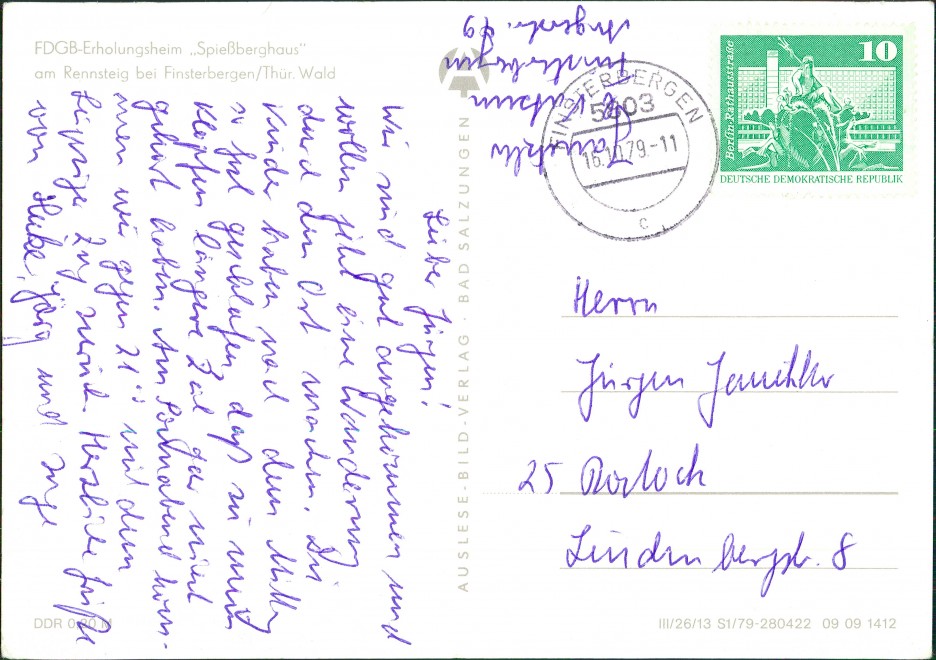 FDGB-Erholungsheim „Spießberghaus"
am Rennsteig bei Finsterbergen/Thür. Wald
Lieber Jürgen!
Wir sind gut angekommen und
wollen jetzt eine Wanderung
durch den Ort machen. Die
Kinder haben nach dem Mittag
so fest geschlafen, daß sie mein
Klopfen längere Zeit gar nicht
gehört haben. Am Sonnabend kom-
men wir gegen 21 mit dem
Leipziger Zug zurück. Herzliche Grüße
von Heike, Jörg und Inge
AUSLESE-BILD-VERLAG · BAD SALZUNGEN
Finsterbergen
FINSTERBERGEN
5803
79.-11
c
10
Berlin-Rathausstraße
DEUTSCHE DEMOKRATISCHE REPUBLIK
Herrn
Jürgen
25 Rostock
Lindenbergstr. 8
DDR 0,20 M
III/26/13 S1/79-280422 09 09 1412